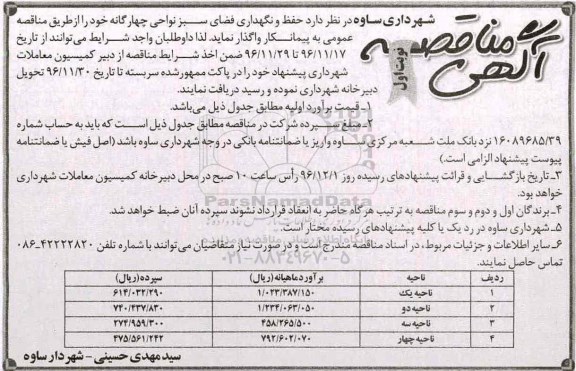 آگهی مناقصه
نوبت اول
شهرداری ساوه در نظر دارد حفظ و نگهداری فضای سبز نواحی چهارگانه خود را ازطریق مناقصه
عمومی به پیمانکار واگذار نماید. لذا داوطلبان واجد شرایط می‌توانند از تاریخ
۹۶/۱۱/۱۷ تا ۹۶/۱۱/۲۹ ضمن اخذ شرایط مناقصه از دبیر کمیسیون معاملات
شهرداری پیشنهاد خود را در پاکت ممهور شده سربسته تا تاریخ ۹۶/۱۱/۳۰ تحویل
دبیرخانه شهرداری نموده و رسید دریافت نمایند.
۱ـ قیمت برآورد اولیه مطابق جدول ذیل می‌باشد.
۲ـ مبلغ سپرده شرکت در مناقصه مطابق جدول ذیل است که باید به حساب شماره
۱۶۰۸۹۶۸۵/۳۹ نزد بانک ملت شعبه مرکزی ساوه واریز یا ضمانتنامه بانکی در وجه شهرداری ساوه باشد (اصل فیش یا ضمانتنامه
پیوست پیشنهاد الزامی است.)
۳ـ تاریخ بازگشایی و قرائت پیشنهادهای رسیده روز ۹۶/۱۲/۱ رأس ساعت ۱۰ صبح در محل دبیرخانه کمیسیون معاملات شهرداری
خواهد بود.
۴ـ برندگان اول و دوم و سوم مناقصه به ترتیب هرگاه حاضر به انعقاد قرارداد نشوند سپرده آنان ضبط خواهد شد.
۵ـ شهرداری ساوه در رد یک یا کلیه پیشنهادهای رسیده مختار است.
۶ـ سایر اطلاعات و جزئیات مربوط، در اسناد مناقصه مندرج است و در صورت نیاز متقاضیان می‌توانند با شماره تلفن ۴۲۲۲۲۸۲۰-۰۸۶
تماس حاصل نمایند.
ParsNamadData
۰۲۱-۸۸۳۴۹۶۷۰-۵
ردیف ناحیه برآورد ماهیانه (ریال) سپرده (ریال)
۱ ناحیه یک ۱/۰۲۳/۳۸۷/۱۵۰ ۶۱۴/۰۳۲/۲۹۰
۲ ناحیه دو ۱/۲۳۴/۰۶۳/۰۵۰ ۷۴۰/۴۳۷/۸۳۰
۳ ناحیه سه ۴۵۸/۲۶۵/۵۰۰ ۲۷۴/۹۵۹/۳۰۰
۴ ناحیه چهار ۷۹۲/۶۰۲/۰۷۰ ۴۷۵/۵۶۱/۲۴۲
سید مهدی حسینی - شهردار ساوه